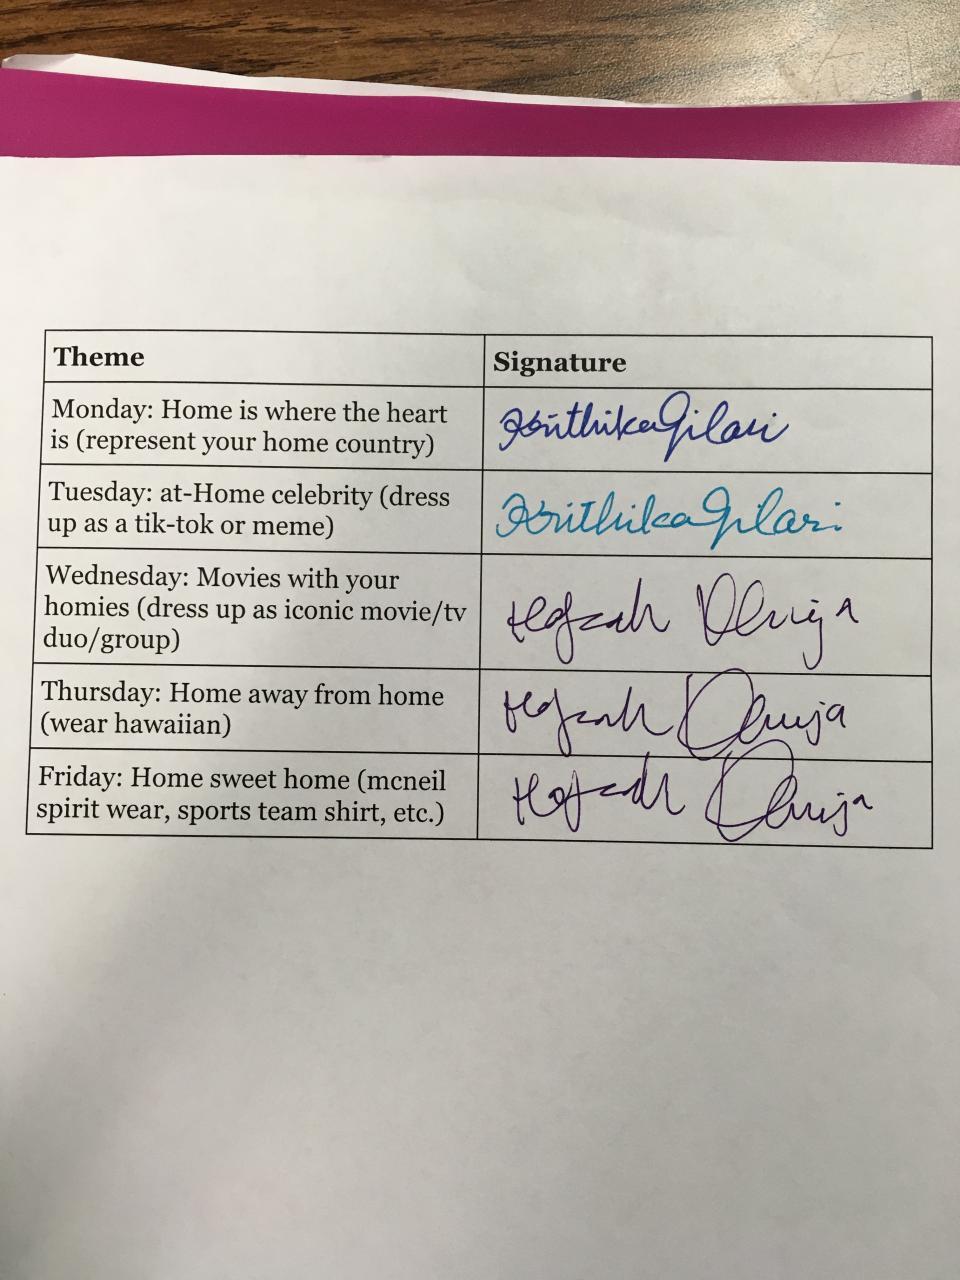 Theme
Signature
Monday: Home is where the heart
is (represent your home country)
Krithika Gilari
Tuesday: at-Home celebrity (dress
up as a tik-tok or meme)
Krithika Gilari
Wednesday: Movies with your
homies (dress up as iconic movie/tv
duo/group)
Thursday: Home away from home
(wear hawaiian)
Friday: Home sweet home (mcneil
spirit wear, sports team shirt, etc.)